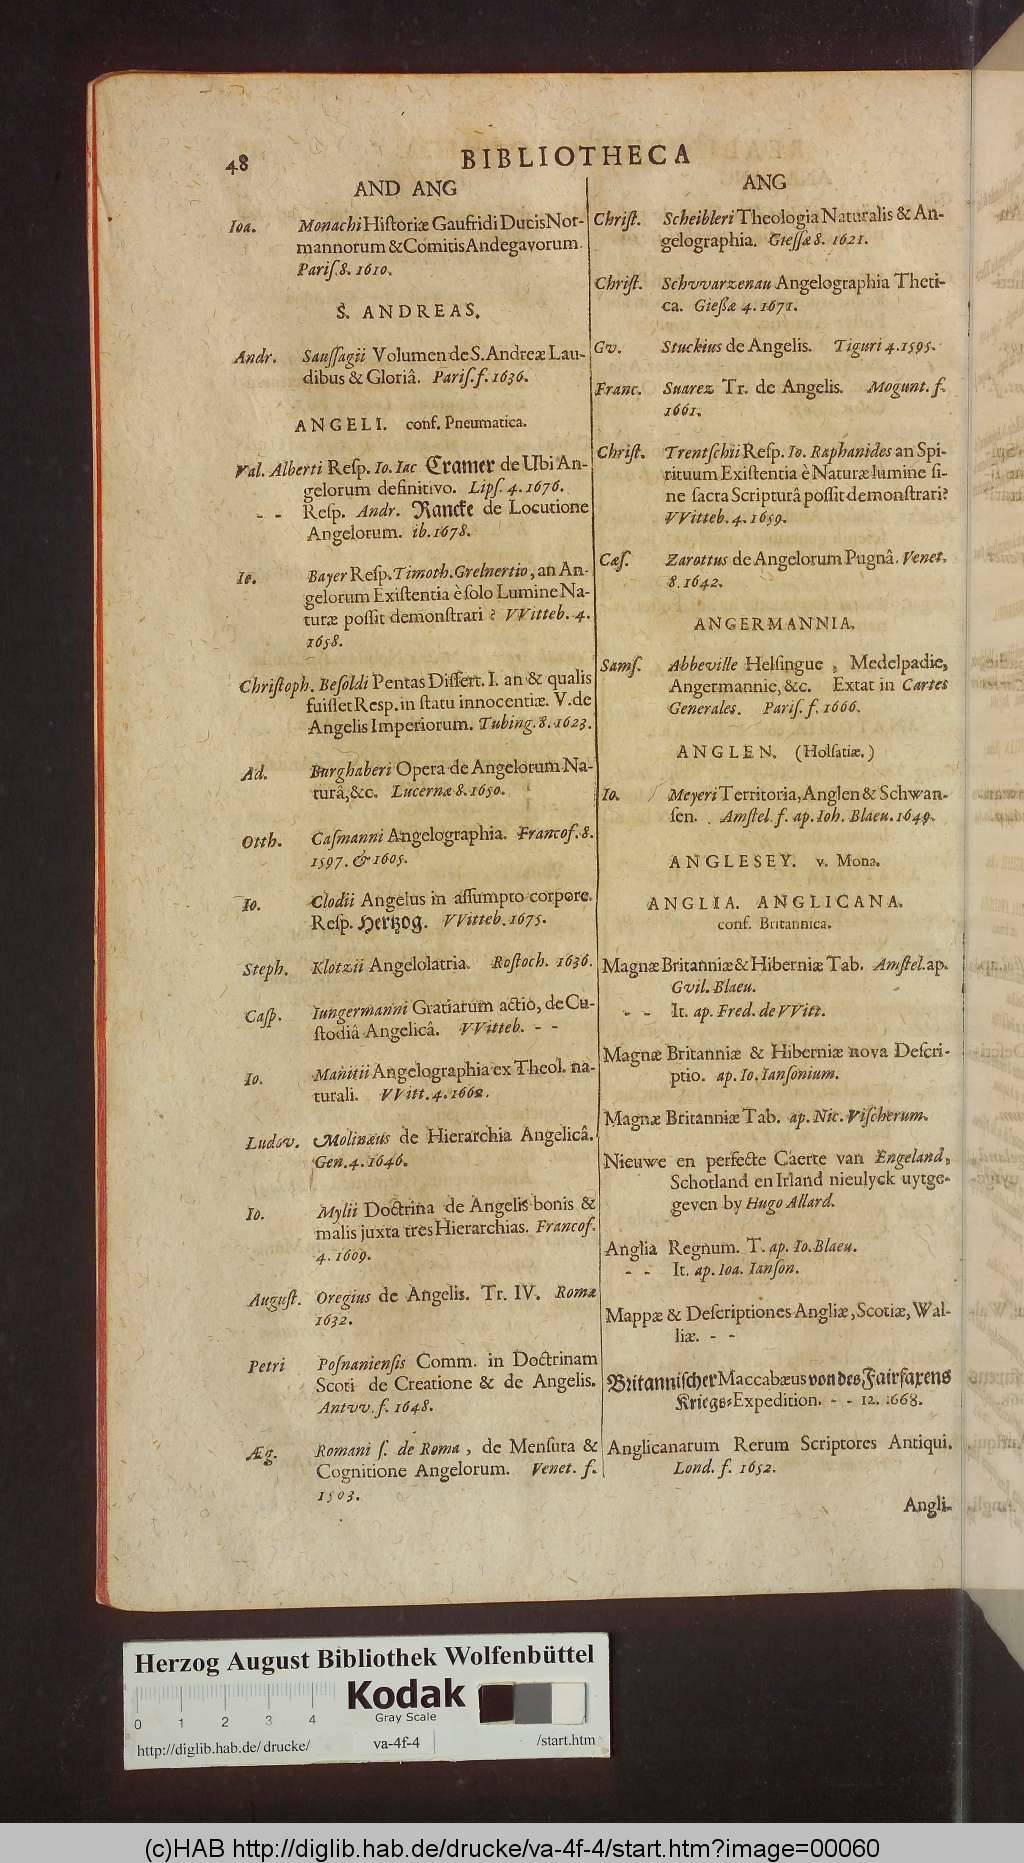 48
BIBLIOTHECA
AND ANG
Ioa. Monachi Historiæ Gaufridi Ducis Nor-
mannorum & Comitis Andegavorum.
Paris. 8. 1610.
S. ANDREAS.
Andr. Saussagii Volumen de S. Andreæ Lau-
dibus & Gloriâ. Paris. f. 1636.
ANGELI. conf. Pneumatica.
Val. Alberti Resp. Io. Iac Cramer de Ubi An-
gelorum definitivo. Lips. 4. 1676.
- - Resp. Andr. Rancke de Locutione
Angelorum. ib. 1678.
Io. Bayer Resp. Timoth. Grelnertio, an An-
gelorum Existentia è solo Lumine Na-
turæ possit demonstrari? VVitteb. 4.
1658.
Christoph. Besoldi Pentas Dissert. I. an & qualis
fuisset Resp. in statu innocentiæ. V. de
Angelis Imperiorum. Tubing. 8. 1623.
Ad. Burghaberi Opera de Angelorum Na-
turâ, &c. Lucernæ 8. 1650.
Otth. Casmanni Angelographia. Francof. 8.
1597. & 1605.
Io. Clodii Angelus in assumpto corpore.
Resp. Hertzog. VVitteb. 1675.
Steph. Klotzii Angelolatria. Rostoch. 1636.
Casp. Iungermanni Gratiarum actio, de Cu-
stodiâ Angelicâ. VVitteb. - -
Io. Manitii Angelographia ex Theol. na-
turali. VVitt. 4. 1662.
Ludov. Molinæus de Hierarchia Angelicâ.
Gen. 4. 1646.
Io. Mylii Doctrina de Angelis bonis &
malis juxta tres Hierarchias. Francof.
4. 1609.
August. Oregius de Angelis. Tr. IV. Romæ
1632.
Petri Posnaniensis Comm. in Doctrinam
Scoti de Creatione & de Angelis.
Antvv. f. 1648.
Æg. Romani s. de Roma, de Mensura &
Cognitione Angelorum. Venet. f.
1503.
ANG
Christ. Scheibleri Theologia Naturalis & An-
gelographia. Giessæ 8. 1621.
Christ. Schvvarzenau Angelographia Theti-
ca. Gießæ 4. 1671.
Gv. Stuckius de Angelis. Tiguri 4. 1595.
Franc. Suarez Tr. de Angelis. Mogunt. f.
1661.
Christ. Trentschii Resp. Io. Raphanides an Spi-
rituum Existentia è Naturæ lumine si-
ne sacra Scripturâ possit demonstrari?
VVitteb. 4. 1659.
Cæs. Zarottus de Angelorum Pugnâ. Venet.
8. 1642.
ANGERMANNIA.
Sams. Abbeville Helsingue, Medelpadie,
Angermannie, &c. Extat in Cartes
Generales. Paris. f. 1666.
ANGLEN. (Holsatiæ.)
Io. Meyeri Territoria, Anglen & Schwan-
sen. Amstel. f. ap. Ioh. Blaeu. 1649.
ANGLESEY. v. Mona.
ANGLIA. ANGLICANA.
conf. Britannica.
Magnæ Britanniæ & Hiberniæ Tab. Amstel. ap.
Gvil. Blaeu.
- - It. ap. Fred. de VVitt.
Magnæ Britanniæ & Hiberniæ nova Descri-
ptio. ap. Io. Iansonium.
Magnæ Britanniæ Tab. ap. Nic. Vischerum.
Nieuwe en perfecte Caerte van Engeland,
Schotland en Irland nieulyck uytge-
geven by Hugo Allard.
Anglia Regnum. T. ap. Io. Blaeu.
- - It. ap. Ioa. Ianson.
Mappæ & Descriptiones Angliæ, Scotiæ, Wal-
liæ. - -
Britannischer Maccabæus von des Fairfaxens
Kriegs-Expedition. - - 12. 1668.
Anglicanarum Rerum Scriptores Antiqui.
Lond. f. 1652.
Angli-
Herzog August Bibliothek Wolfenbüttel
Kodak
Gray Scale
0 1 2 3 4
http://diglib.hab.de/drucke/ va-4f-4 /start.htm
(c)HAB http://diglib.hab.de/drucke/va-4f-4/start.htm?image=00060